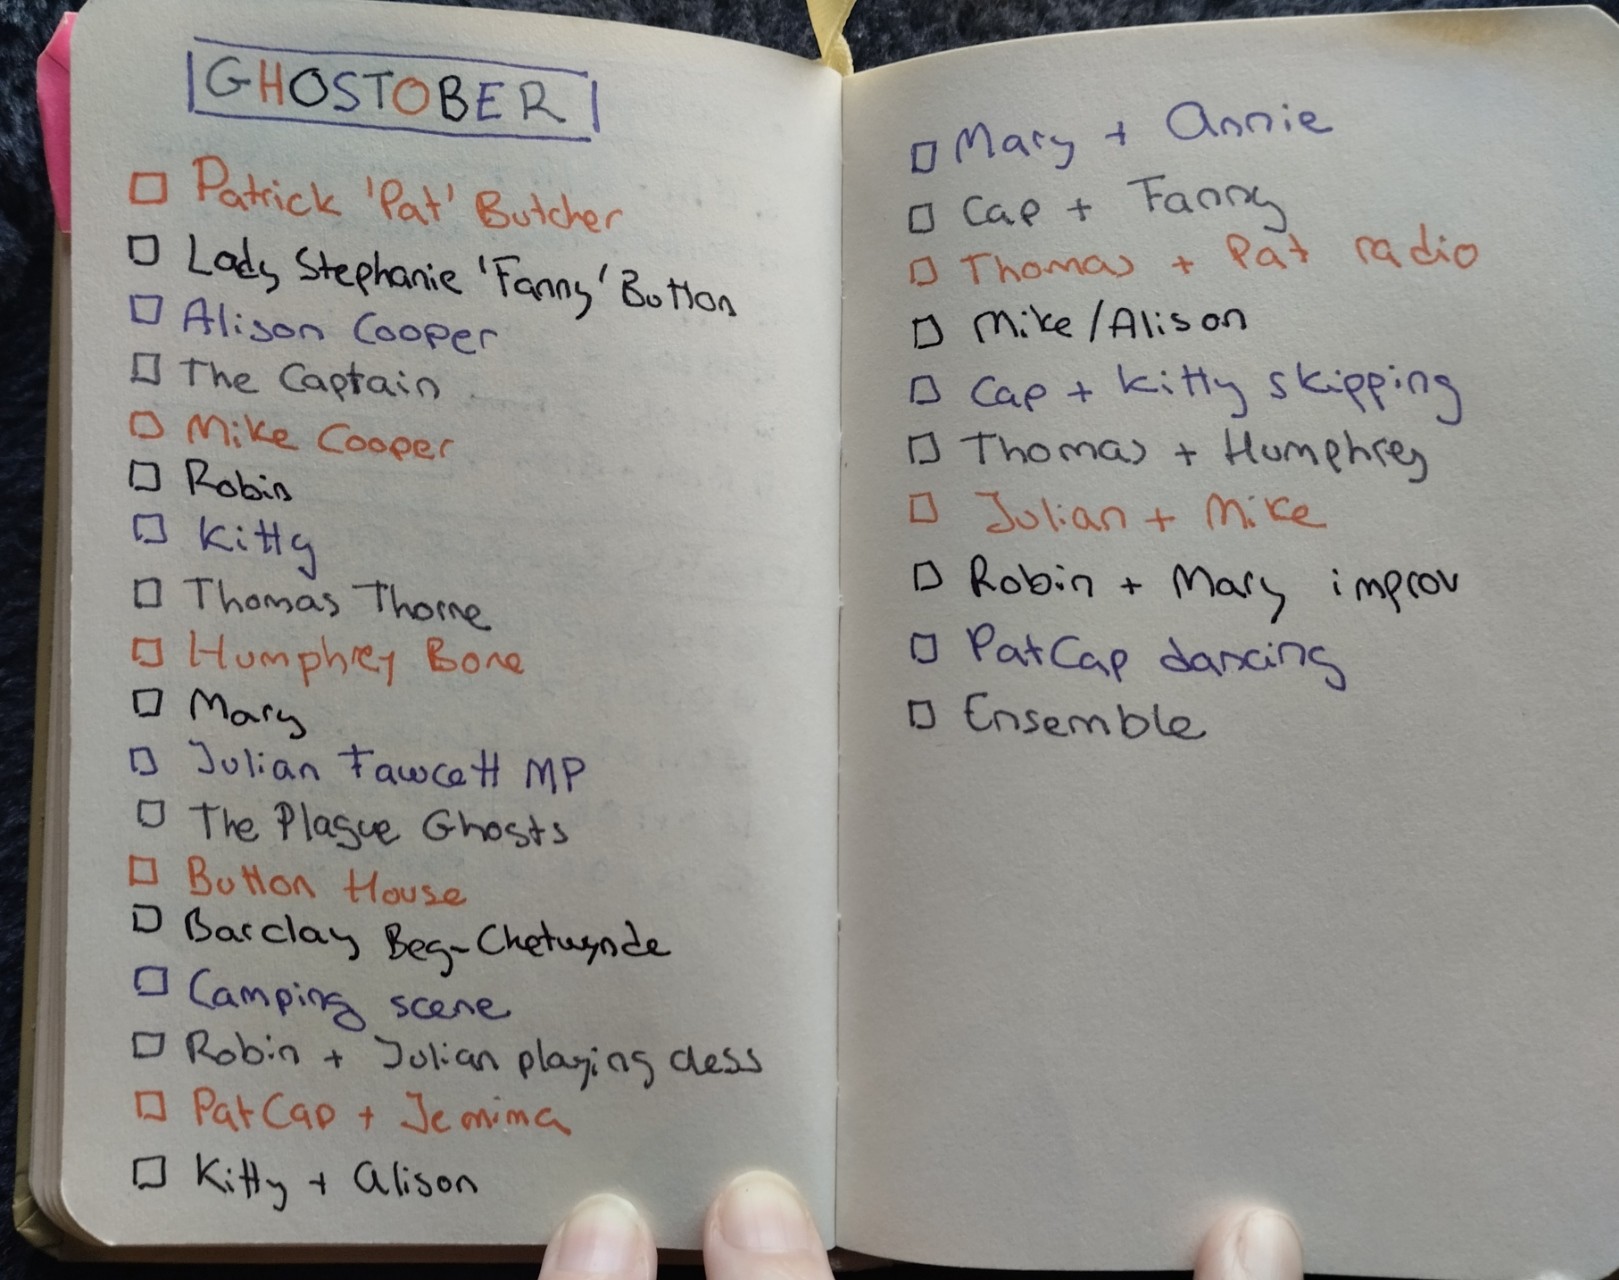 GHOSTOBER
Patrick 'Pat' Butcher
Lady Stephanie 'Fanny' Button
Alison Cooper
The Captain
Mike Cooper
Robin
Kitty
Thomas Thorne
Humphrey Bone
Mary
Julian Fawcett MP
The Plague Ghosts
Button House
Barclay Beg-Chetwynde
Camping scene
Robin + Julian playing chess
PatCap + Jemima
Kitty + Alison
Mary + Annie
Cap + Fanny
Thomas + Pat radio
Mike/Alison
Cap + Kitty skipping
Thomas + Humphrey
Julian + Mike
Robin + Mary improv
PatCap dancing
Ensemble